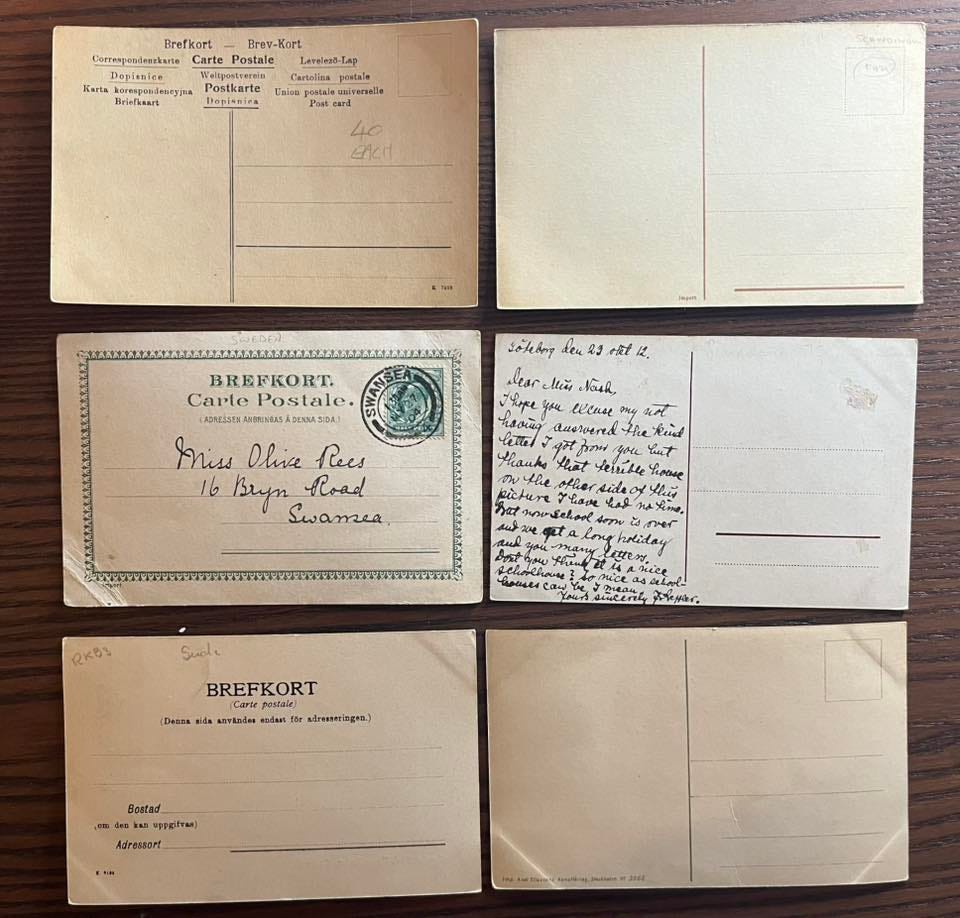 Brefkort — Brev-Kort
Correspondenzkarte Carte Postale Levelező-Lap
Dopisnice Weltpostverein Cartolina postale
Karta korespondencyjna Postkarte Union postale universelle
Briefkaart Dopisnica Post card
40
EACH
Import
SWEDEN
BREFKORT.
Carte Postale.
(ADRESSEN ANBRINGAS Å DENNA SIDA.)
SWANSEA
04
Miss Olive Rees
16 Bryn Road
Swansea.
Import.
Göteborg den 23 12.
Dear Miss Nash,
I hope you excuse my not
having answered the kind
letter I got from you but
thanks that terrible house
on the other side of this
picture I have had no time.
But now school soon is over
and we get a long holiday
and you many letters.
Dont you think it is a nice
schoolhouse? So nice as school-
houses can be, I mean.
Yours sincerely
RKB3
BREFKORT
(Carte postale)
(Denna sida användes endast för adresseringen.)
Bostad
(om den kan uppgifvas)
Adressort
Imp. Axel Eliassons Konstförlag, Stockholm